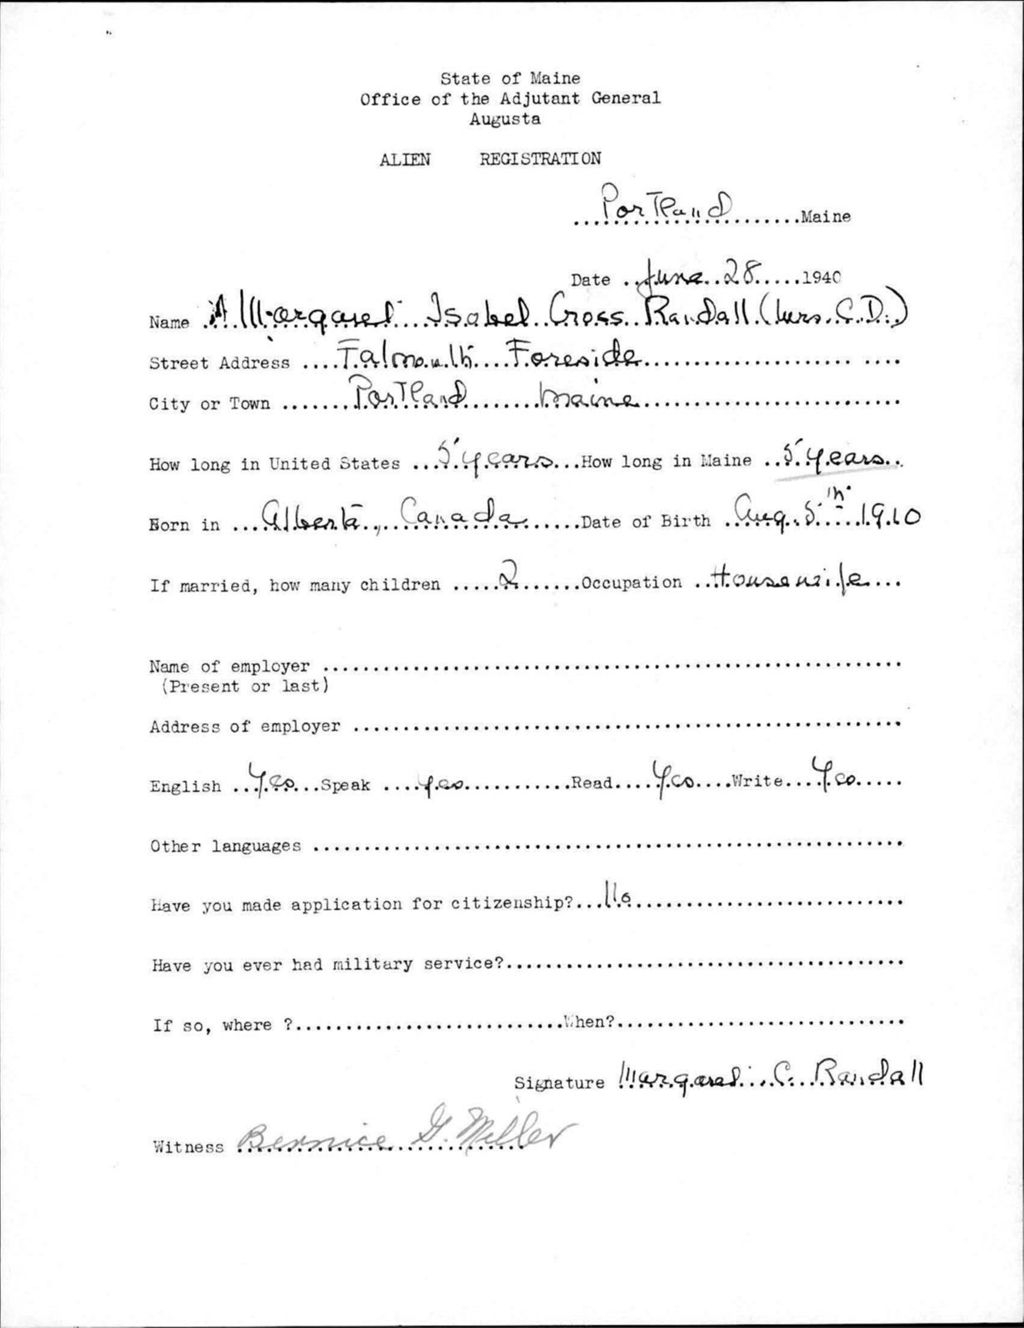 State of Maine
Office of the Adjutant General
Augusta
ALIEN REGISTRATION
Portland Maine
Date June 28 1940
Name A Margaret Isabel Cross Randall (Mrs. C.D.)
Street Address Falmouth Foreside
City or Town Portland Maine
How long in United States 5 years How long in Maine 5 years
Born in Alberta, Canada Date of Birth Aug. 5th 1910
If married, how many children 2 Occupation Housewife
Name of employer
(Present or last)
Address of employer
English Yes Speak yes Read Yes Write Yes
Other languages
Have you made application for citizenship? No
Have you ever had military service?
If so, where ? When?
Signature Margaret C. Randall
Witness Bernice G. Miller